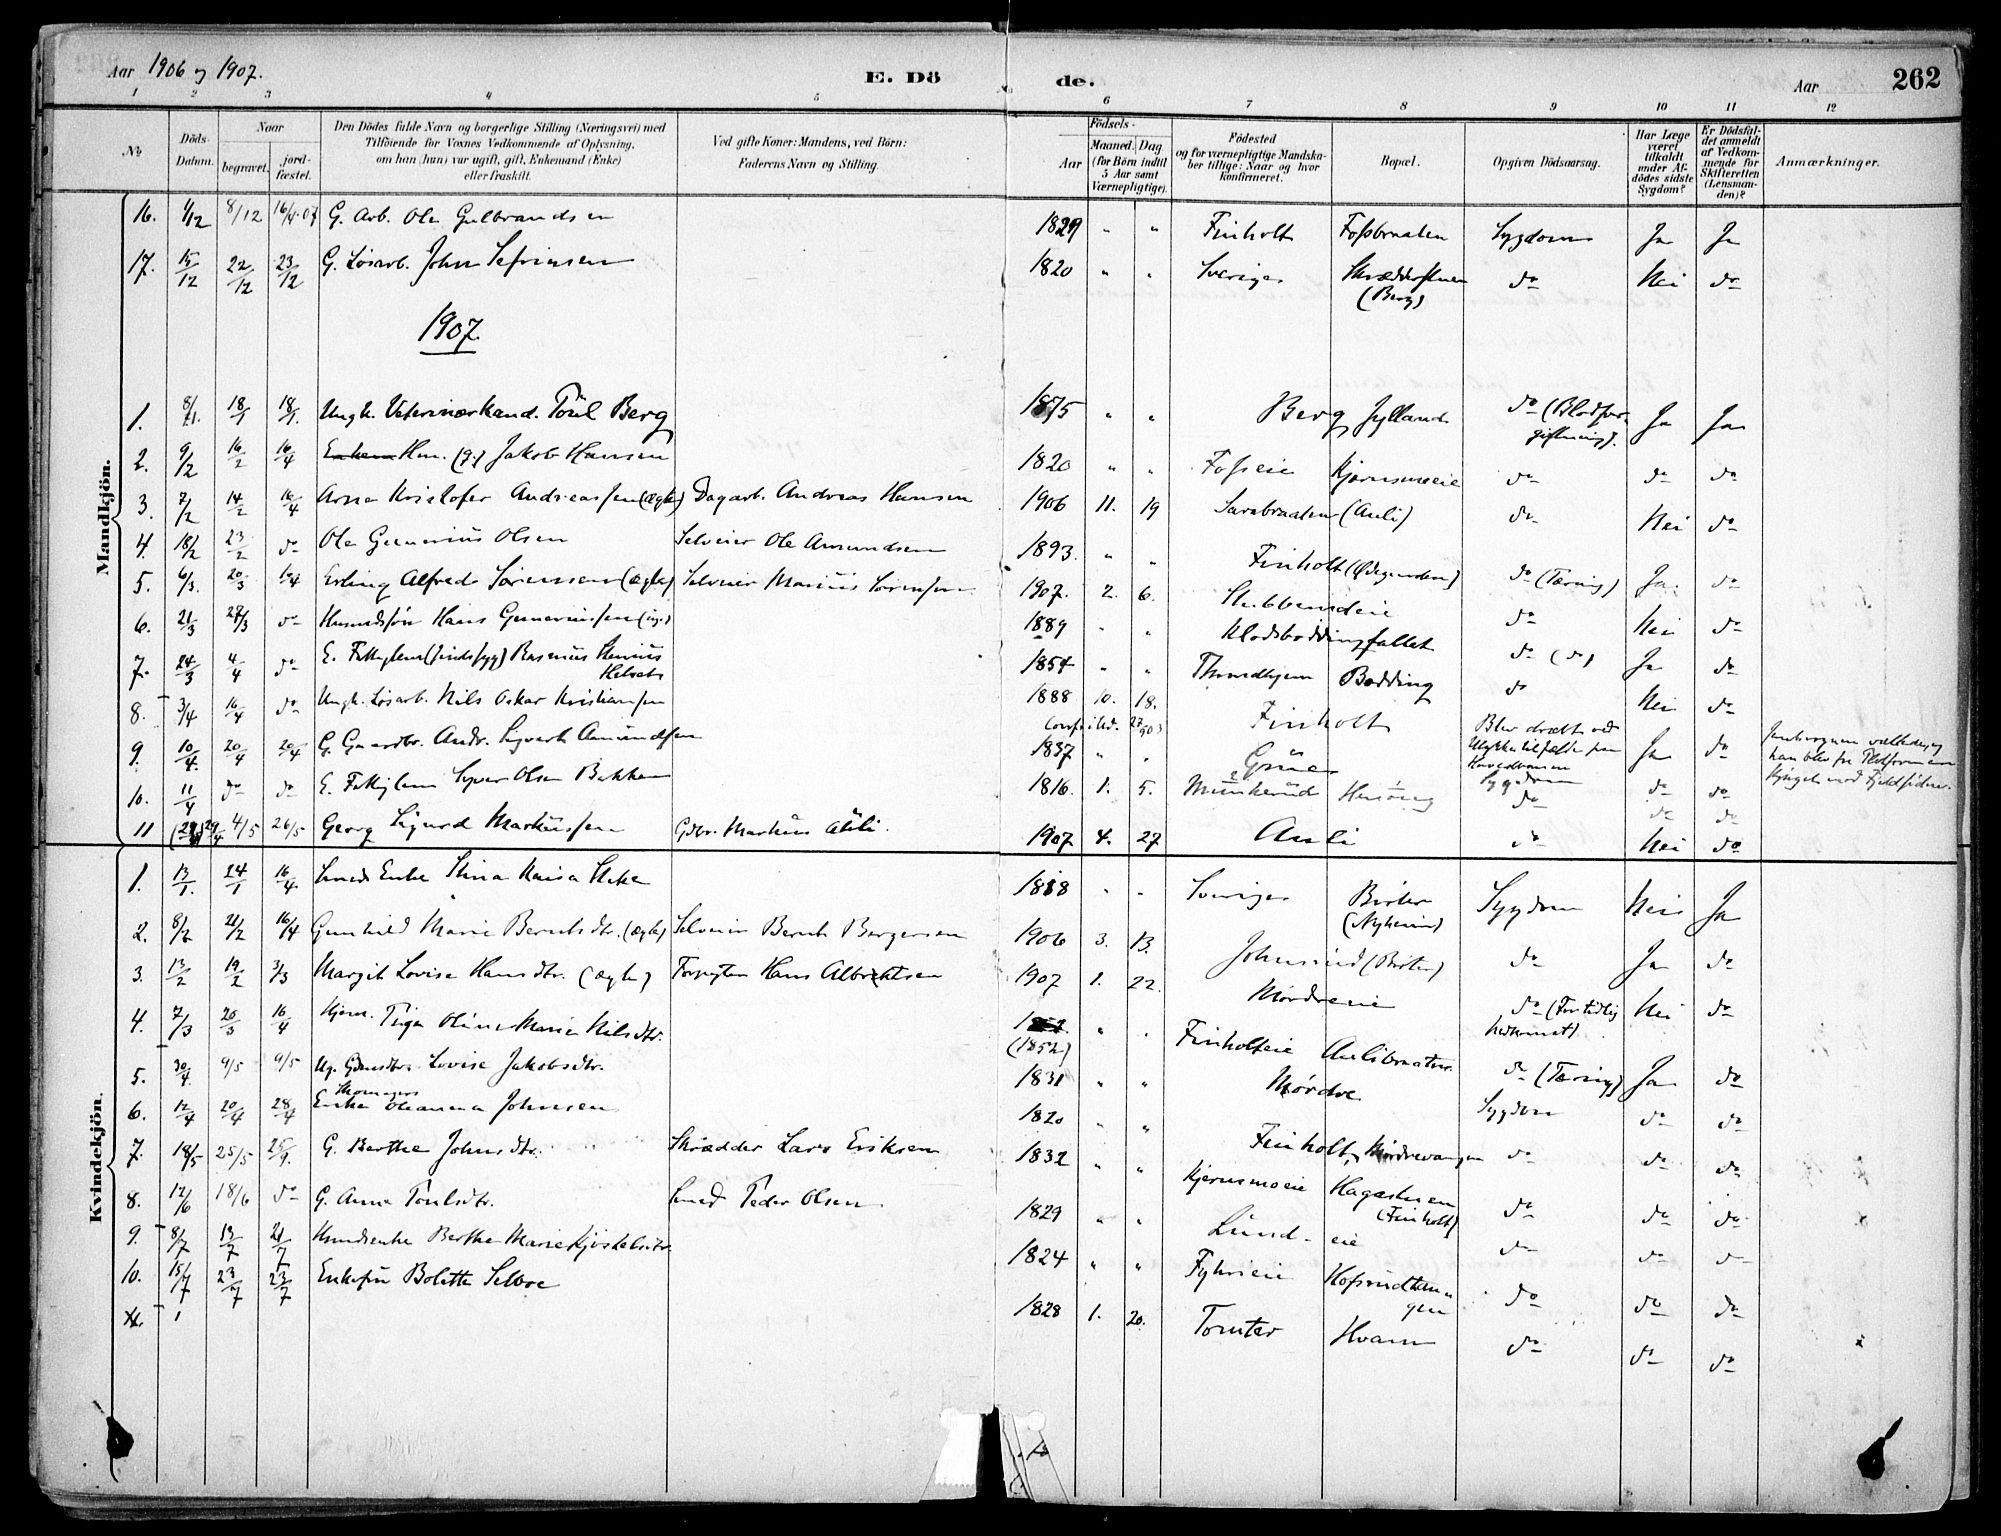 Aar 1906 og 1907.
E. Dö
de.
Aar
262
1 2 3 4 5 6 7 8 9 10 11 12
No
Döds-Datum.
Naar
begravet.
jord-fæstet.
Den Dödes fulde Navn og borgerlige Stilling (Næringsvei) med
Tilföiende for Voxnes Vedkommende af Oplysning,
om han (hun) var ugift, gift, Enkemand (Enke)
eller fraskilt.
Ved gifte Koner: Mandens, ved Börn:
Faderens Navn og Stilling.
Födsels-
Aar
Maaned. Dag
(for Börn indtil
5 Aar samt
Værnepligtige).
Födested
og for værnepligtige Mandska-
ber tillige: Naar og hvor
konfirmeret.
Bopæl.
Opgiven Dödsaarsag.
Har Læge
været
tilkaldt
under Af-
dödes sidste
Sygdom?
Er Dödsfal-
det anmeldt
af Vedkom-
mende for
Skifteretten
(Lensman-
den)?
Anmærkninger.
Mandkjön.
16. 1/12 8/12 16/4 07 G. Arb. Ole Gulbrandsen 1829 " " Finholt Fossbraaten Sygdom Ja Ja
17. 15/12 22/12 23/12 G. Løsarb. John Sefrinsen 1820 " " Sverige (Berg) do Nei do
1907.
1. 8/1. 18/1 18/1. Ungk. Veterinærkand. Toril Berg 1875 " " Berg, Jylland do (Blodfor-
giftning). Ja Ja
2. 9/2 16/2 16/4 Hm. (g.) Jakob Hansen 1820 " " Fosseie Kjernsmoeie do do do
3. 7/2 14/2 16/4 Arne Kristofer Andreassen (ægte) Dagarb. Andreas Hansen 1906 11. 19 Sarabraaten (Auli) do Nei do
4. 18/2 23/2 do Ole Gunerius Olsen Selveier Ole Amundsen 1893. " " Finholt (Ødegaarden) do (Tæring) Ja. do
5. 6/3. 20/3 16/4 Erling Alfred Sørensen (ægte) Selveier Marius Sørensen 1907. 2. 6. Stubbemdeie do Nei do
6. 21/3 28/3 do Husmdsøn Hans Guneriussen (ug.) 1889 " " Klodsboddingfallet do (do) Ja do
7. 24/3 4/4 do E. Fattiglem (sindssyg) Rasmus 1854 " " Throndhjem Bodding do Nei do
8. 3/4 16/4 do Ungk. Løsarb. Nils Oskar Kristiansen 1888 10. 18. Finholt Blev dræbt ved
Ulykkestilfælde paa
Hovedbanen Ja do
9. 10/4. 20/4 20/4 G. Gaardbr. Andr. Sigvart Amundsen 1837 " " Grue Sygdom do do
10. 11/4 do do E. Fattiglem Syver Olsen Bakken 1816. 1. 5. Munkerud do do do
11 29/4 4/5 26/5 Georg Sigurd Markussen Gdbr. Markus Auli. 1907 4. 27 Auli do Nei do
Kvindekjön.
1. 13/1. 24/1 16/4 Enke Stina Kaisa 1818 " " Sverige (Nyheim) Sygdom Nei Ja
2. 8/2 21/2 16/4 Gunhild Marie Berntsdtr. (ægte) Selveier Bernt Bergersen 1906 3. 13. Johnsrud do Ja do
3. 13/2 19/2 3/3 Margit Lovise Hansdtr. (ægte) Forpagter Hans Albrektsen 1907 1. 22. Mørdreeie do (For tidlig
nedkomst). Nei do
4. 7/3 20/3 16/4 Hjem. Pige Oline Marie Nilsdtr. (1852) " " Finholteie Aulibraaten do (Tæring) Ja do
5. 30/4. 9/5 9/5 Ug. Lovise Jakobsdtr. 1831 " " Mørdre Sygdom do do
6. 12/4 20/4 28/4 Enke Oleanna Johnsen 1820 " " Finholt, Mørdrevangen do do do
7. 18/5 25/5 G. Berthe Johnsdtr. Skrædder Lars Eriksen 1832 " " Kjernsmoeie Hagastuen
(Finholt) do do do
8. 12/6 18/6 do G. Anna Paulsdtr. Smed Peder Olsen 1829 " " Lund-eie do do do
9. 8/7 13/7 21/7 Husmdsenke Berthe Marie 1824 " " Hofsrudtan-
gen do do do
10. 15/7 23/7 23/7 Enkefru Bolette Selboe 1828 1. 20. Tomter Hvam do do do